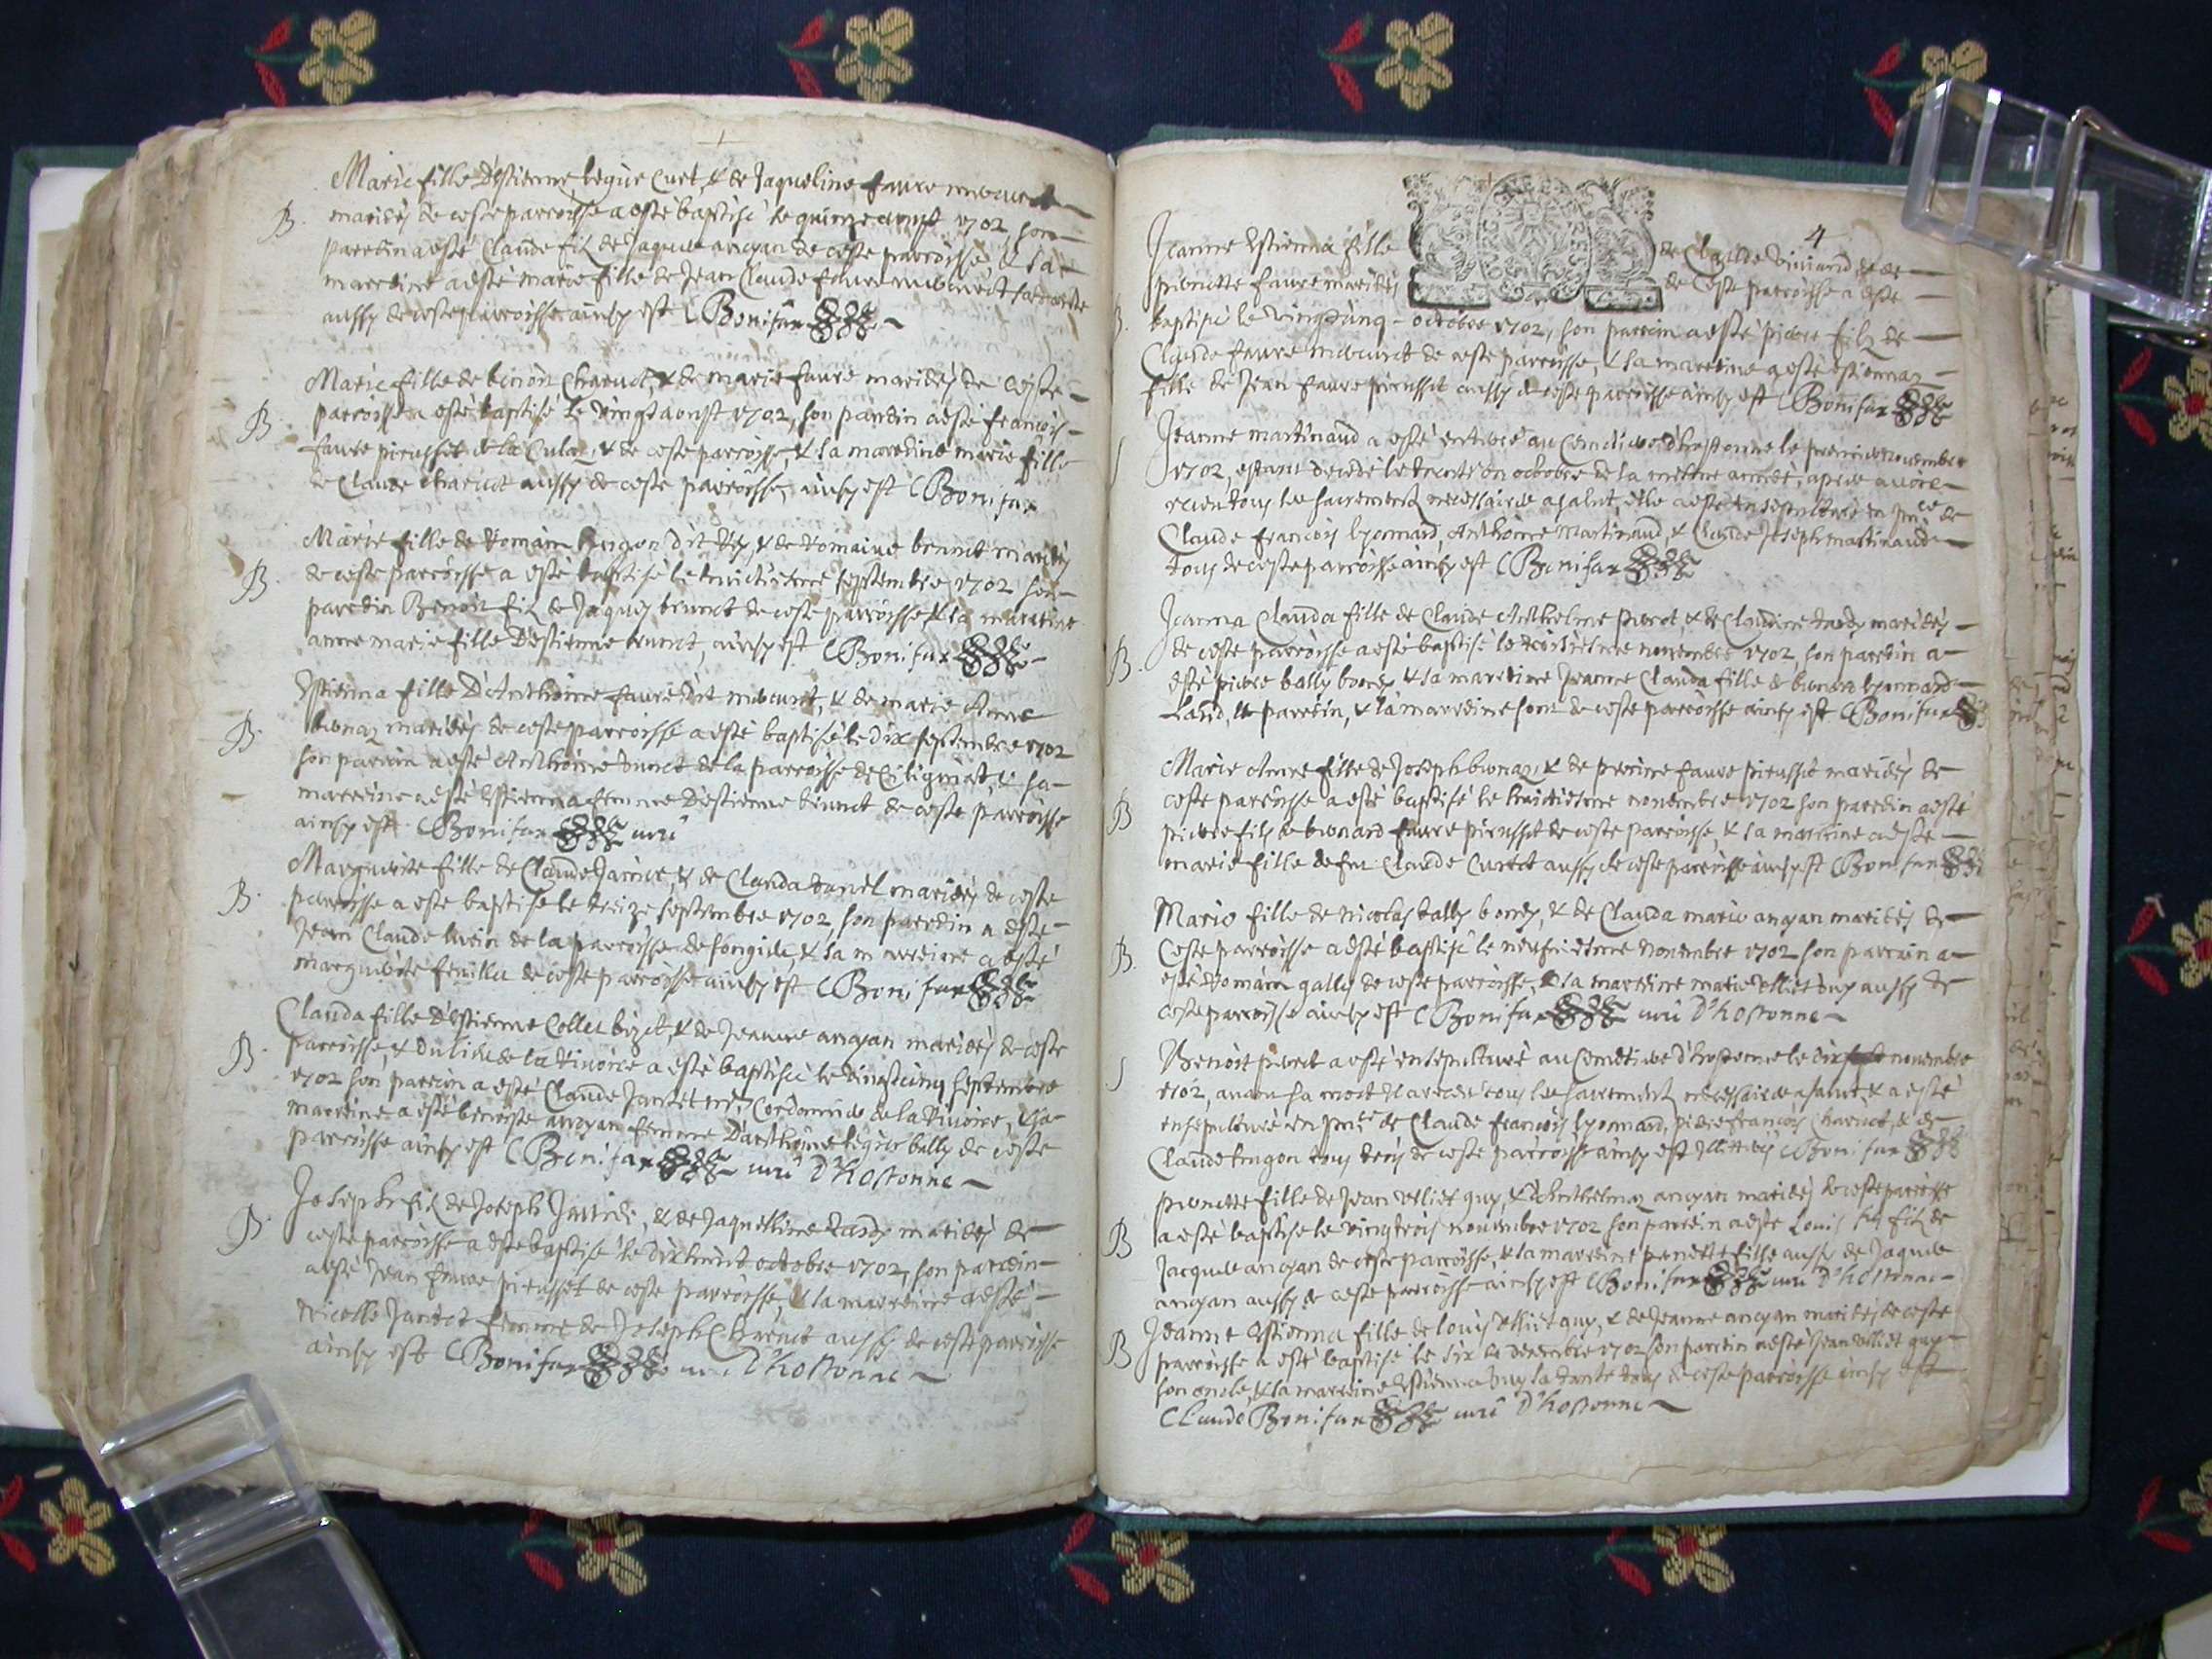 Marie fille d'Estienne legue Curt, & de Jaqueline faure
B. mariéz de ceste parroisse a esté baptisé le quinze aoust 1702 son
parrdin a esté Claude filz de Jaque anoyan de ceste parroisse & sa
marrdine a esté marie fille de Jean Claude faure
aussy de ceste parroisse ainsy est C Bonifax
Marie fille de & de marie faure mariéz de ceste
B. parroisse a esté baptisé le vingt aoust 1702, son parrdin a esté francois
faure pirusset de la Cula, & de ceste parroisse, & sa marrdine marie fille
de Claude Charuet aussy de ceste parroisse, ainsy est C Bonifax
Marie fille de Romain hugon dit Rey, & de Romaine brunet mariéz
B. de ceste parroisse a esté baptisé le huictiesme septembre 1702 son
parrdin Benoit filz de Jaques brunet de ceste parroisse & sa marrdine
anne marie fille d'Estienne brunet, ainsy est C Bonifax
Estienna fille d'Anthoine faure dit & de marie Anne
B. mariéz de ceste parroisse a esté baptisé le dix septembre 1702
son parrin a esté Anthoine de la parroisse de & sa
marrdine a esté Estienna femme d'Estienne brunet de ceste parroisse
ainsy est C Bonifax curé
Marguerite fille de Claude & de Clauda mariéz de ceste
B. parroisse a esté baptisé le treize septembre 1702, son parrdin a esté
Jean Claude de la parroisse de songieu, & sa marrdine a esté
marguerite de ceste parroisse ainsy est C Bonifax
Clauda fille d'Estienne Collet & de Jeanne anoyan mariéz de ceste
B. parroisse, & du lieu de la Rivoire a esté baptisée le vingt cinq septembre
1702 son parrin a esté Claude Jantet Cordonnier de la Rivoire, & sa
marrdine a esté benoiste anoyan femme d'anthoine bally de ceste
parroisse ainsy est C Bonifax curé D'hostonne
Joseph filz de Joseph & de Jaquelline tardy mariéz de
B. ceste parroisse a esté baptisé le dixhuict octobre 1702, son parrdin
a esté Jean faure pirusset de ceste parroisse, & sa marrdine a esté
Nicolle Jantet femme de Joseph Charuet aussy de ceste parroisse
ainsy est C Bonifax curé D'hostonne
4
Jeanne Estienna fille de Claude Viviand & de
pernette faure mariéz de ceste parroisse a esté
B. baptisé le vingt cinq octobre 1702, son parrin a esté pierre filz de
Claude faure de ceste parroisse, & sa marrdine a esté estienna
fille de Jean faure pirusset aussy de ceste parroisse ainsy est C Bonifax
S Jeanne martinaud a esté enterré au Cemetiere d'hostonne le premier novembre
1702, estant decedé le trente un octobre de la mesme année, apres avoir
receu tous les sacrements necessaires a salut, elle a esté ensepulturé en pnce de
Claude francois lyonnard, Anthoine Martinaud, & Claude Joseph martinaud
tous de ceste parroisse ainsy est C Bonifax
Jeanna Clauda fille de Claude Anthelme pieret, & de Claudine tardy mariéz
B. de ceste parroisse a esté baptisé le troisiesme novembre 1702, son parrdin a
esté pierre bally & sa marrdine Jeanne Clauda fille de lyonnard
le parrdin, & la marrdine sont de ceste parroisse ainsy est C Bonifax
Marie Anne fille de Joseph & de perrine faure pirusset mariéz de
B ceste parroisse a esté baptisé le huictiesme novembre 1702 son parrdin a esté
pierre filz de bernard faure pirusset de ceste parroisse, & sa marrdine a esté
marie fille de feu Claude Curtet aussy de ceste parroisse ainsy est C Bonifax
Marie fille de Nicolas bally & de Clauda marie anoyan mariéz de
B. Ceste parroisse a esté baptisé le neufviesme novembre 1702 son parrain a
esté Romain de ceste parroisse, & la marrdine marie aussy de
ceste parroisse ainsy est C Bonifax curé D'hostonne
S Benoit pieret a esté ensepulturé au Cemetiere d'hostonne le dix novembre
1702, avant sa mort il a receu tous les sacrements necessaires a salut & a esté
ensepulturé en pnce de Claude francois lyonnard, pierre francois Charuet, & de
Claude hugon tous trois de ceste parroisse ainsy est C Bonifax
pernette fille de Jean & d'Anthelma anoyan mariéz de ceste parroisse
B a esté baptisé le vingt trois novembre 1702 son parrdin a esté Louis filz de
Jacques anoyan de ceste parroisse, & la marrdine pernette fille aussy de Jaques
anoyan aussy de ceste parroisse ainsy est C Bonifax curé D'hostonne
Jeanne Estienna fille de louis & de Jeanne anoyan mariéz de ceste
B parroisse a esté baptisé le six de decembre 1702 son parrdin a esté Jean
son oncle, & la marrdine Estienna sa tante tous de ceste parroisse ainsy est
Claude Bonifax curé D'hostonne